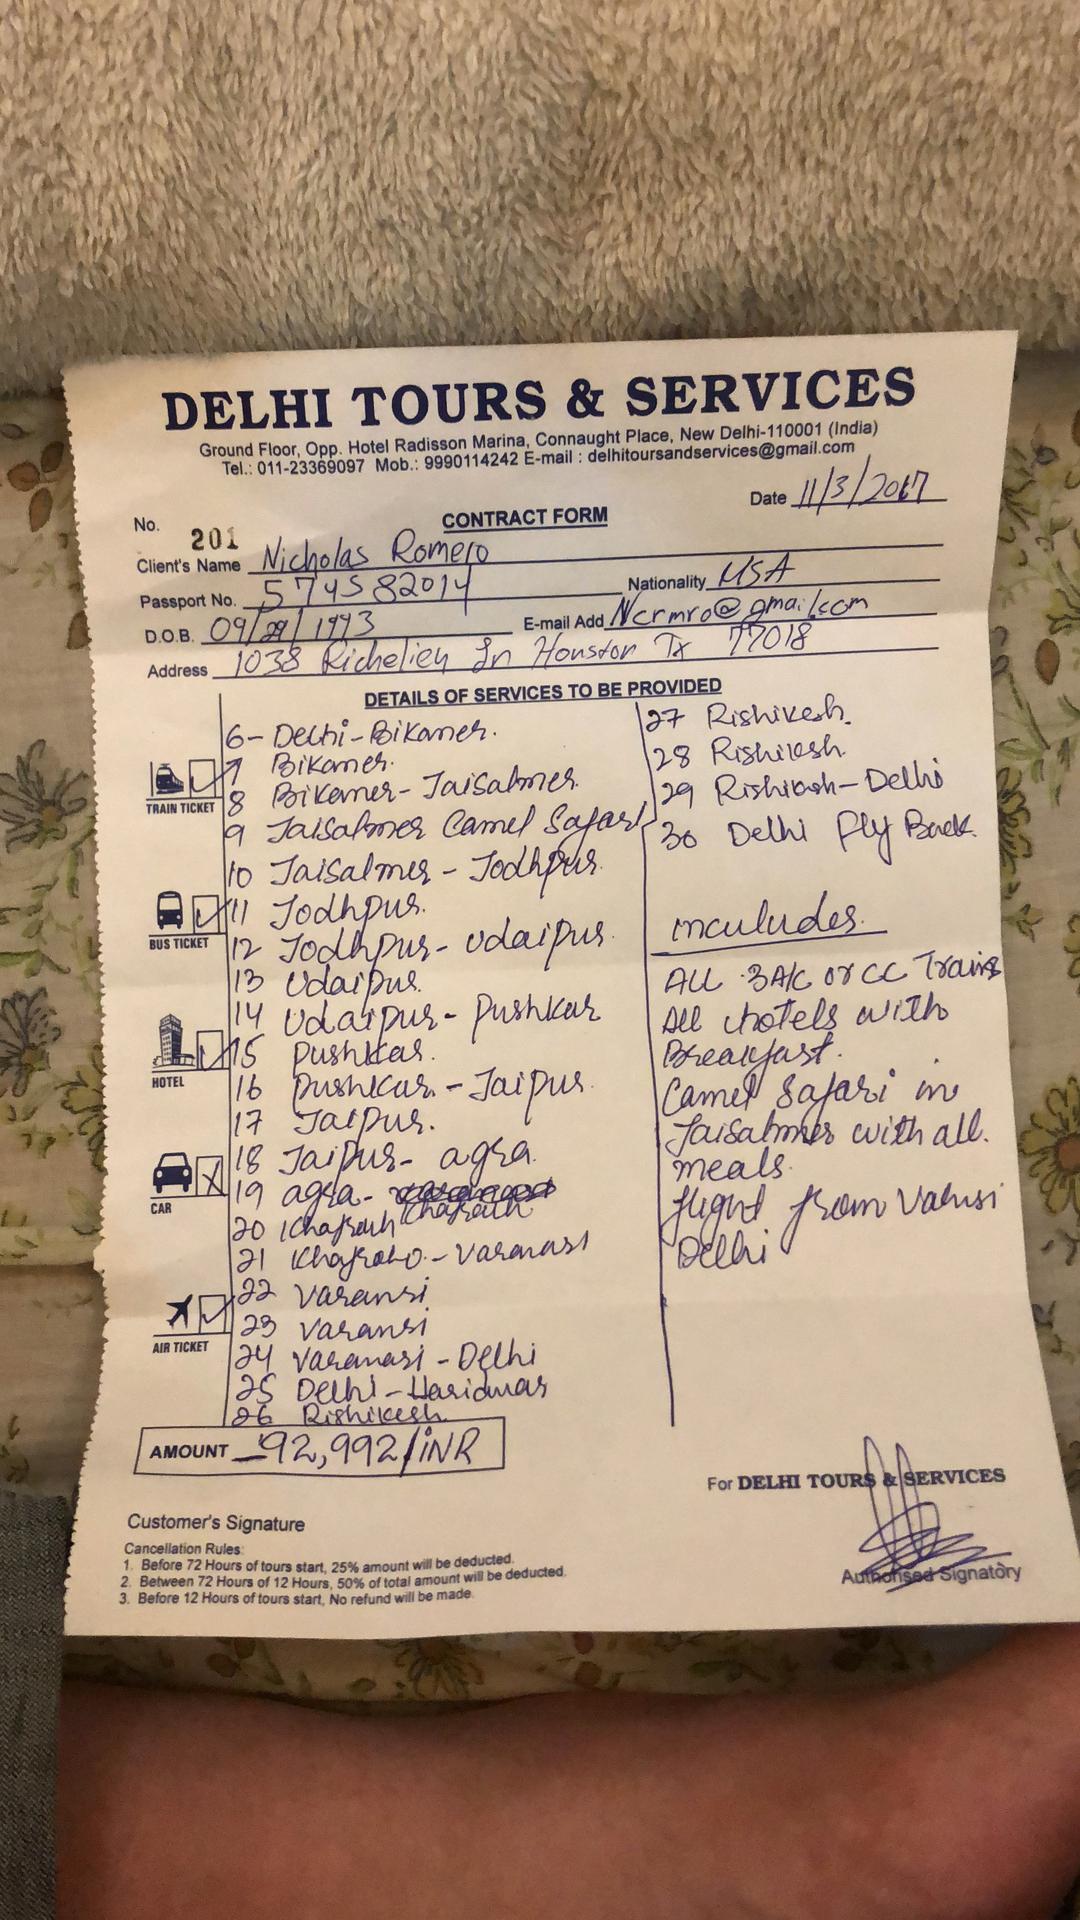 DELHI TOURS & SERVICES
Ground Floor, Opp. Hotel Radisson Marina, Connaught Place, New Delhi-110001 (India)
Tel.: 011-23369097 Mob.: 9990114242 E-mail : delhitoursandservices@gmail.com
Date 11/3/2017
No. 201
CONTRACT FORM
Client's Name Nicholas Romero
Passport No. 574582014 Nationality USA
D.O.B. 09/29/1993 E-mail Add Ncrmro@gmail.com
Address 1038 Richelieu Ln Houston Tx 77018
DETAILS OF SERVICES TO BE PROVIDED
TRAIN TICKET
BUS TICKET
HOTEL
CAR
AIR TICKET
6- Delhi-Bikaner.
7 Bikaner.
8 Bikaner-Jaisalmer.
9 Jaisalmer Camel Safari
10 Jaisalmer - Jodhpur.
11 Jodhpur.
12 Jodhpur- udaipur.
13 Udaipur.
14 Udaipur- Pushkar
15 Pushkar.
16 Pushkar.-Jaipur.
17 Jaipur.
18 Jaipur- agra.
19 agra-
20
21 Khajraho.-Varanasi
22 Varansi
23 Varansi
24 Varanasi -Delhi
25 Delhi-Haridwar
26 Rishikesh
27 Rishikesh.
28 Rishikesh.
29 Rishikesh-Delhi
30 Delhi Fly Back.
inculudes.
ALL 3A/C or CC Trains
All hotels with
Breakfast.
Camel Safari in
Jaisalmer with all.
meals.
flight from Varnsi
Delhi
AMOUNT 92,992/INR
For DELHI TOURS & SERVICES
Authorised Signatory
Customer's Signature
Cancellation Rules:
1. Before 72 Hours of tours start, 25% amount will be deducted.
2. Between 72 Hours of 12 Hours, 50% of total amount will be deducted.
3. Before 12 Hours of tours start, No refund will be made.